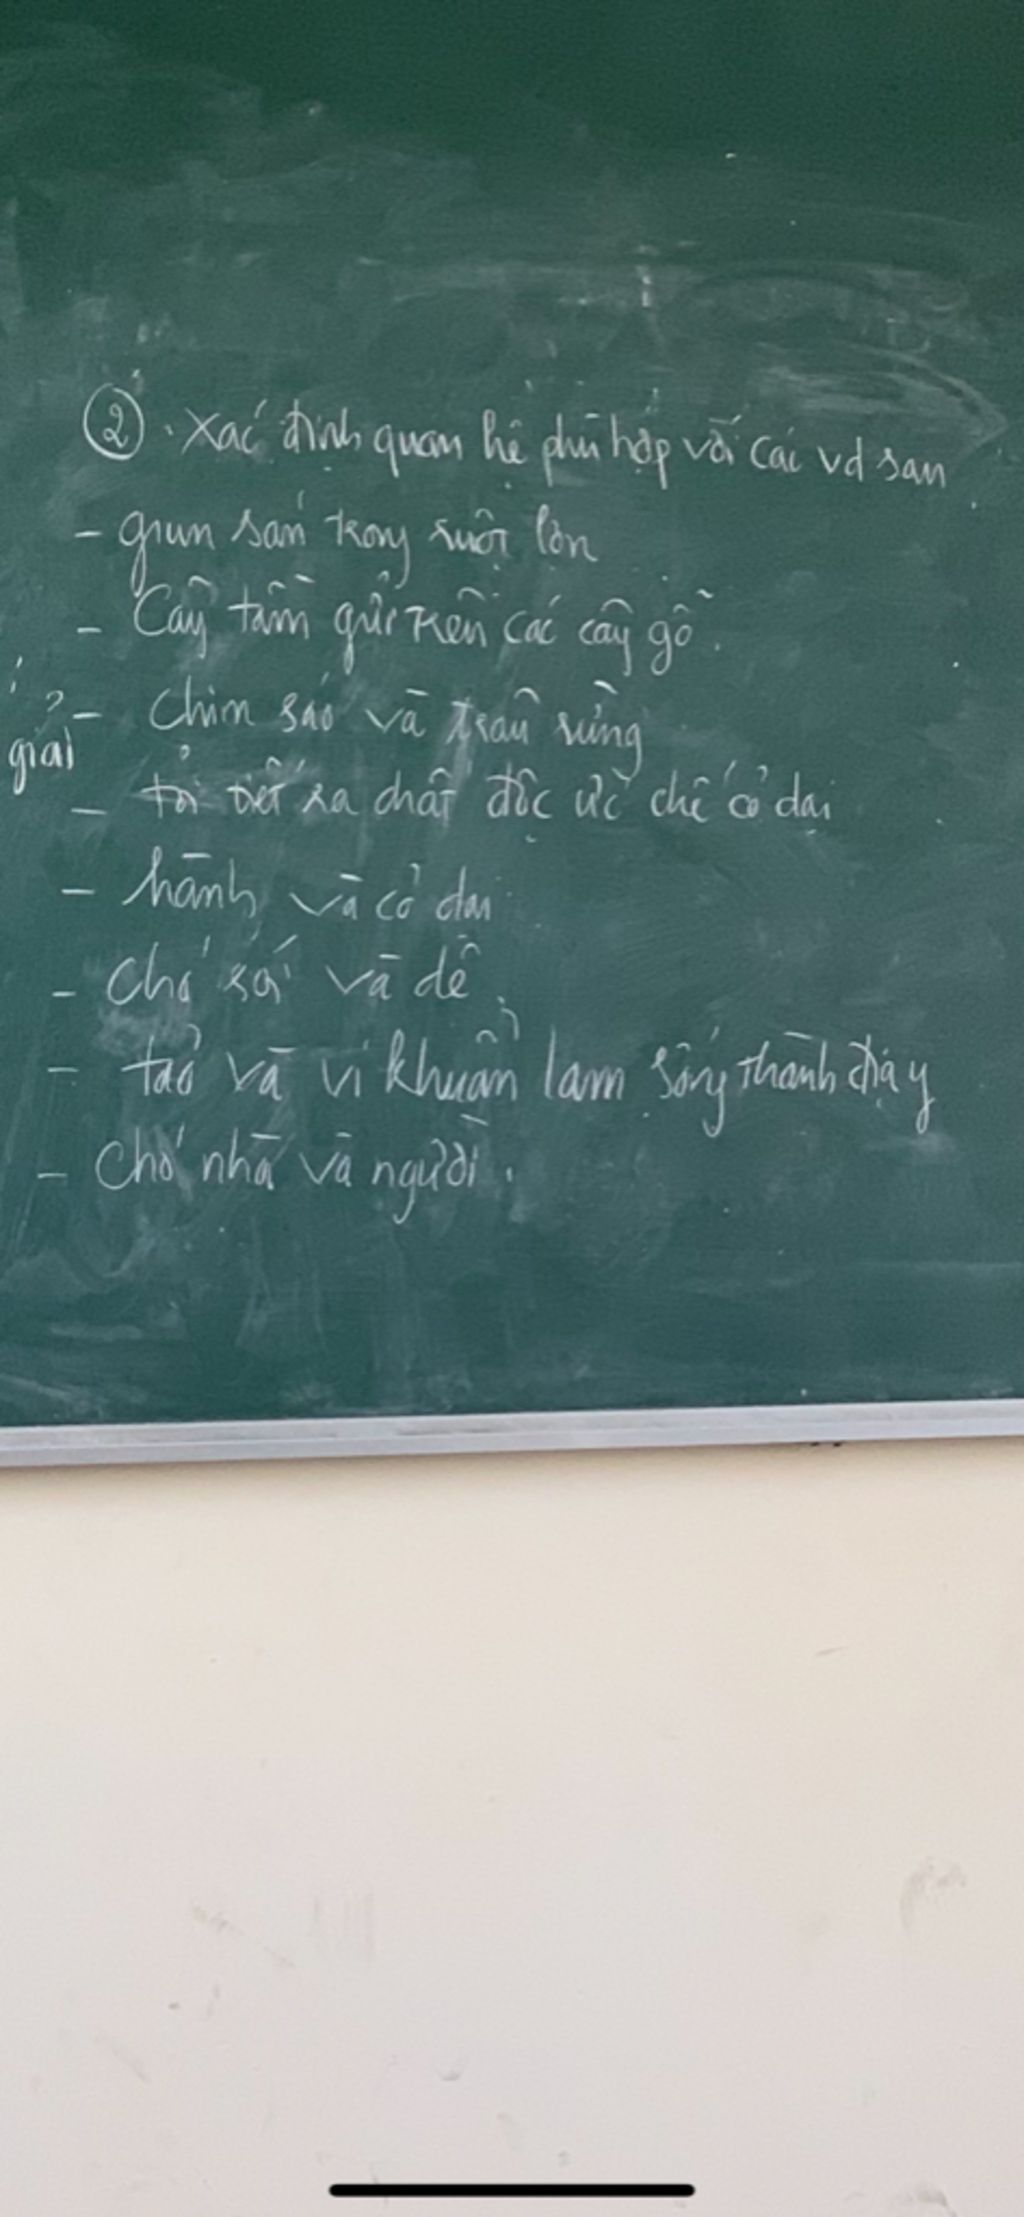 ②. Xác định quan hệ phù hợp với các vd sau
- giun sán trong ruột lợn
- Cây tầm gửi trên các cây gỗ.
- Chim sáo và trâu rừng
giải
- tỏi tiết ra chất độc ức chế cỏ dại
- hành và cỏ dại
- Chó sói và dê
- tảo và vi khuẩn lam sống thành địa y
- Chó nhà và người.